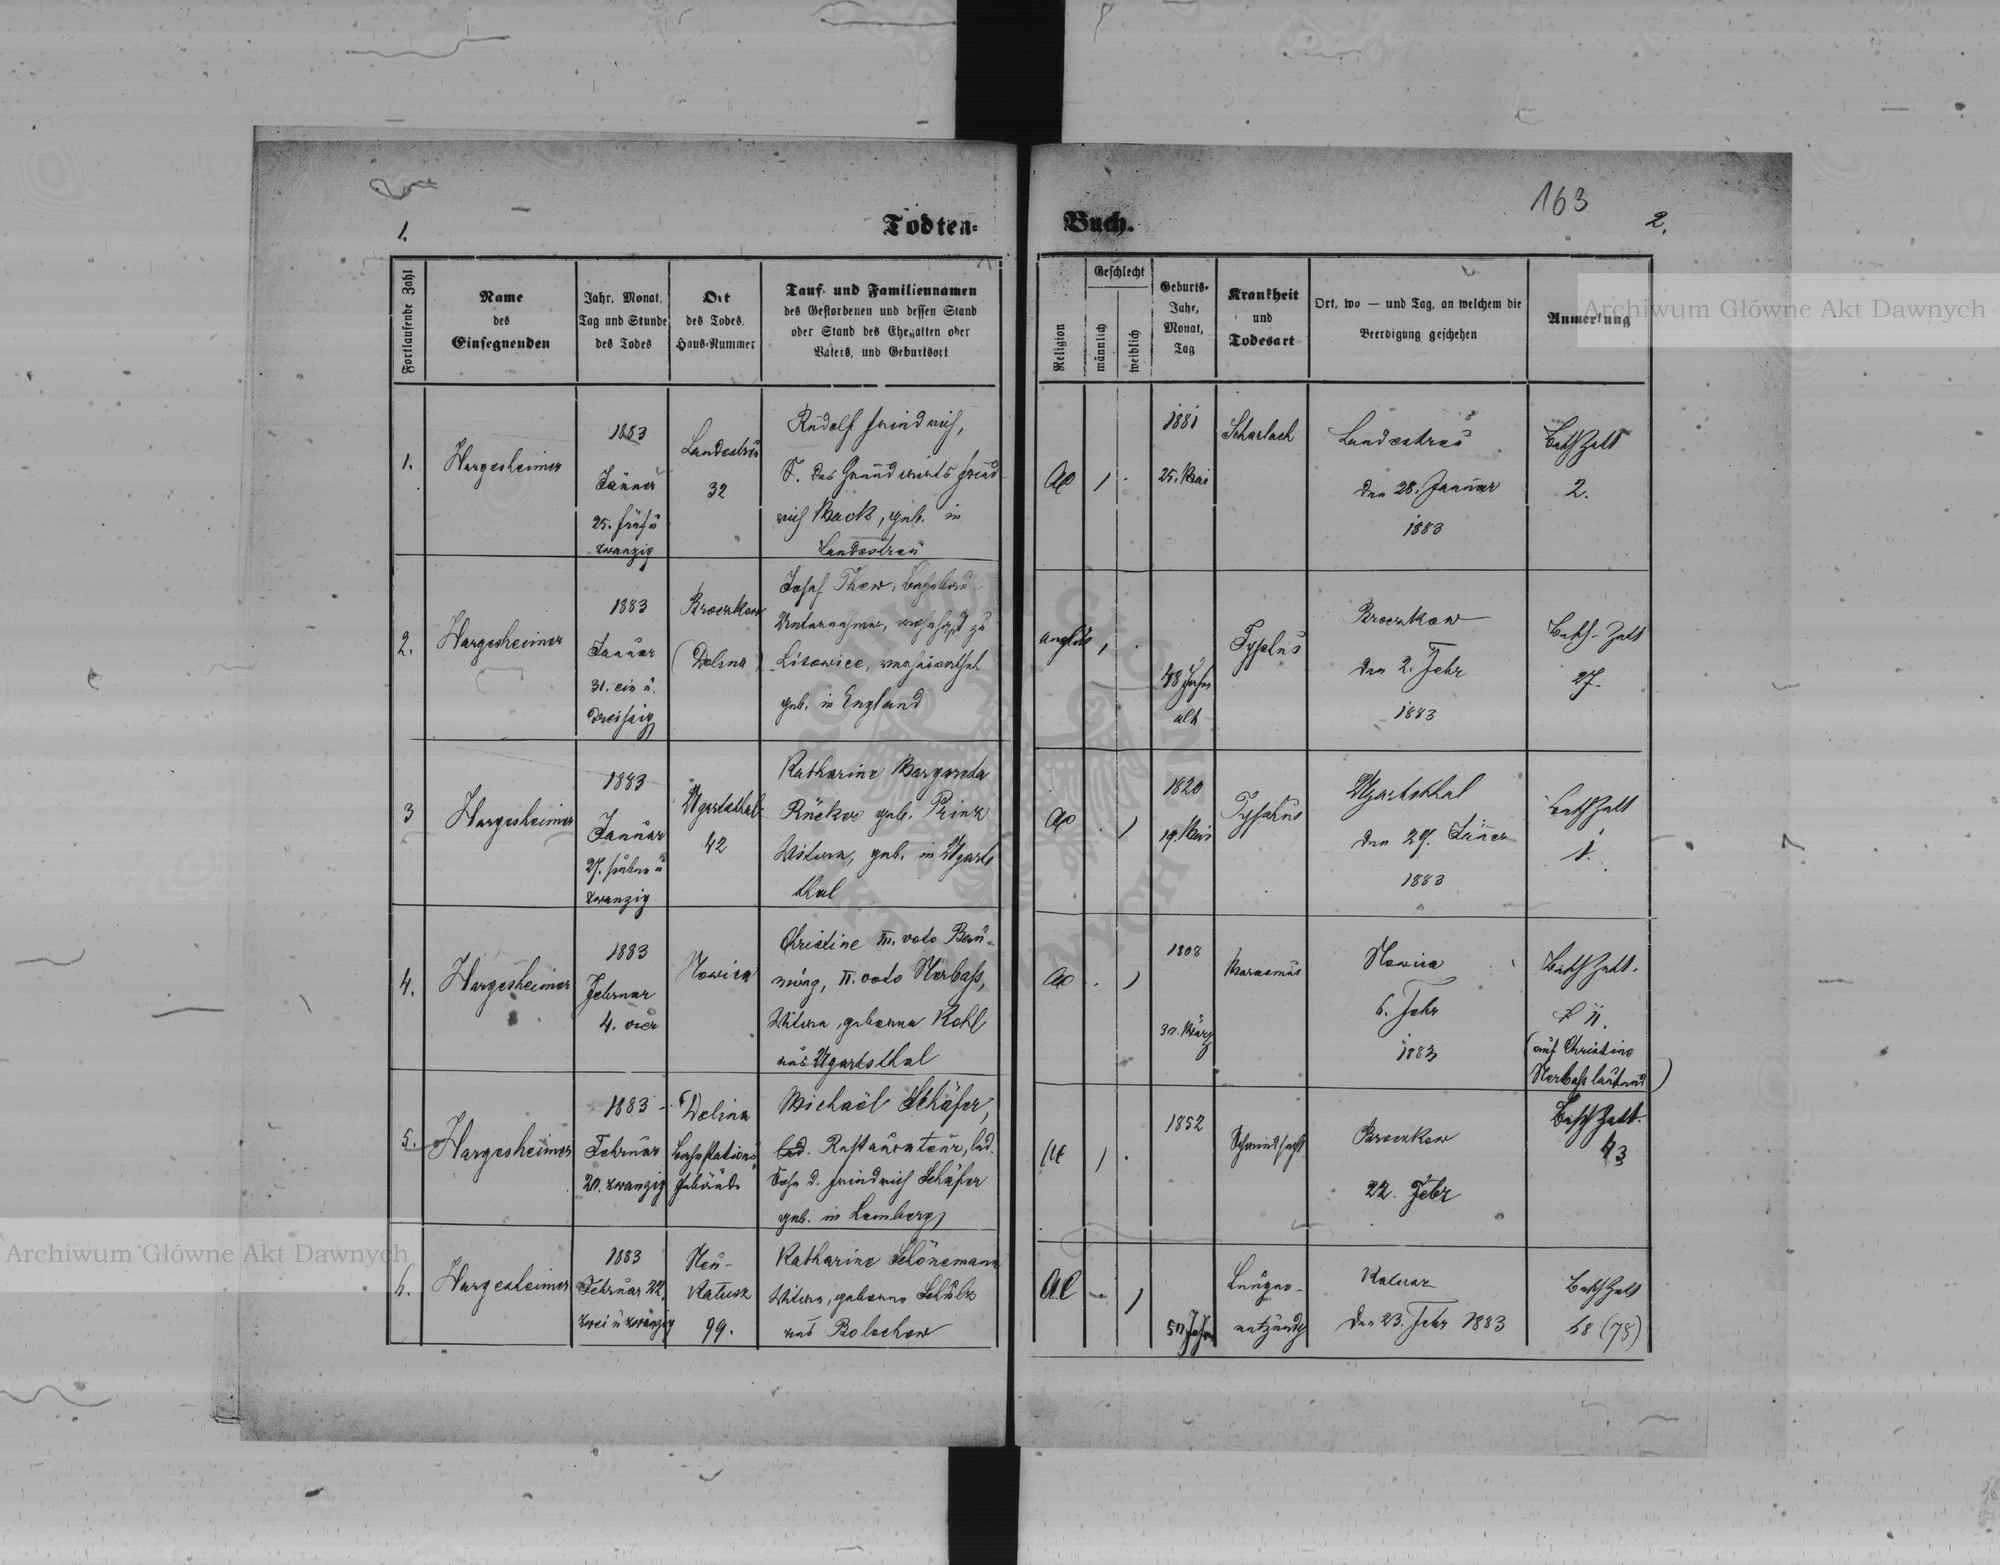 163
1.
Todten-
Buch.
2.
Fortlaufende Zahl
Name
des
Einsegnenden
Jahr, Monat,
Tag und Stunde
des Todes
Ort
des Todes,
Haus-Nummer
Tauf- und Familiennamen
des Gestorbenen und dessen Stand
oder Stand des Ehegatten oder
Vaters, und Geburtsort
Religion
Geschlecht
männlich
weiblich
Geburts-
Jahr,
Monat,
Tag
Krankheit
und
Todesart
Ort, wo — und Tag, an welchem die
Beerdigung geschehen
Anmerkung
Archiwum Główne Akt Dawnych
1.
Hargesheimer
1883
Jänner
25. fünf u
zwanzig
Landestreu
32
Rudolf Friedrich,
S. des Grundwirts Fried
rich Mack, geb. in
Landestreu
1881
25. Mai
Scharlach
Landestreu
den 28. Januar
1883
2.
2.
Hargesheimer
1883
Januar
31. ein u.
dreissig
Broczkow
(Dolina)
Josef Thew,
Unternehmer, wohnhaft zu
Lisowice, verheirathet
geb. in England
48 Jahre
alt
Typhus
Broczkow
den 2. Febr
1883
27.
3
Hargesheimer
1883
Januar
27. sieben u
zwanzig
Ugartsthal
42
Katharine Margareta
Rücker geb. Prinz
Witwe, geb. in Ugarts
thal
1820
19. Mai
Typhus
Ugartsthal
den 29. Jänner
1883
1.
4.
Hargesheimer
1883
Februar
4. vier
Nowica
Christine III. voto Bäu-
II. voto Nerbass,
Witwe, geborene Kohl
aus Ugartsthal
1808
30. März
Marasmus
Nowica
6. Febr
1883
(auf Christine
Nerbass lautend)
5.
Hargesheimer
1883
Februar
20. zwanzig
Dolina
Bahnstations
Gebäude
Michaël Schäfer,
Restaurateur, led.
Sohn d. Friedrich Schäfer
geb. in Lemberg
1852
Schwindsucht
Broczkow
22. Febr
43
6.
Hargesheimer
1883
Februar 22.
zwei u zwanzig
Neu-
Kalusz
99.
Katharine Schönemann
Witwe, geborene Schulz
aus Bolechow
50 Jahre
Lungen-
entzündg
Kalusz
den 23. Febr 1883
68 (78)
Archiwum Główne Akt Dawnych